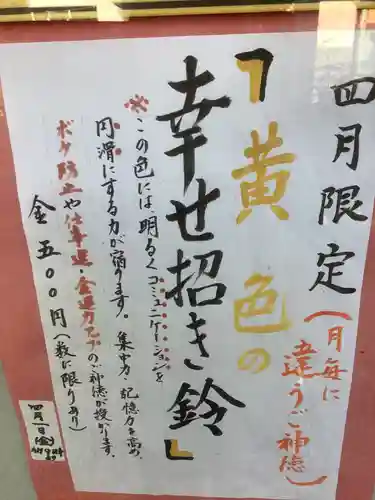 四月限定
(月毎に
違うご神徳)
「黄色の
幸せ招き鈴」
※この色には、明るくコミュニケーションを
円滑にする力が宿ります。集中力・記憶力を高め、
ボケ防止や仕事運・金運力UPのご神徳が授かります。
金五〇〇円(数に限りあり)
四月一日(金)